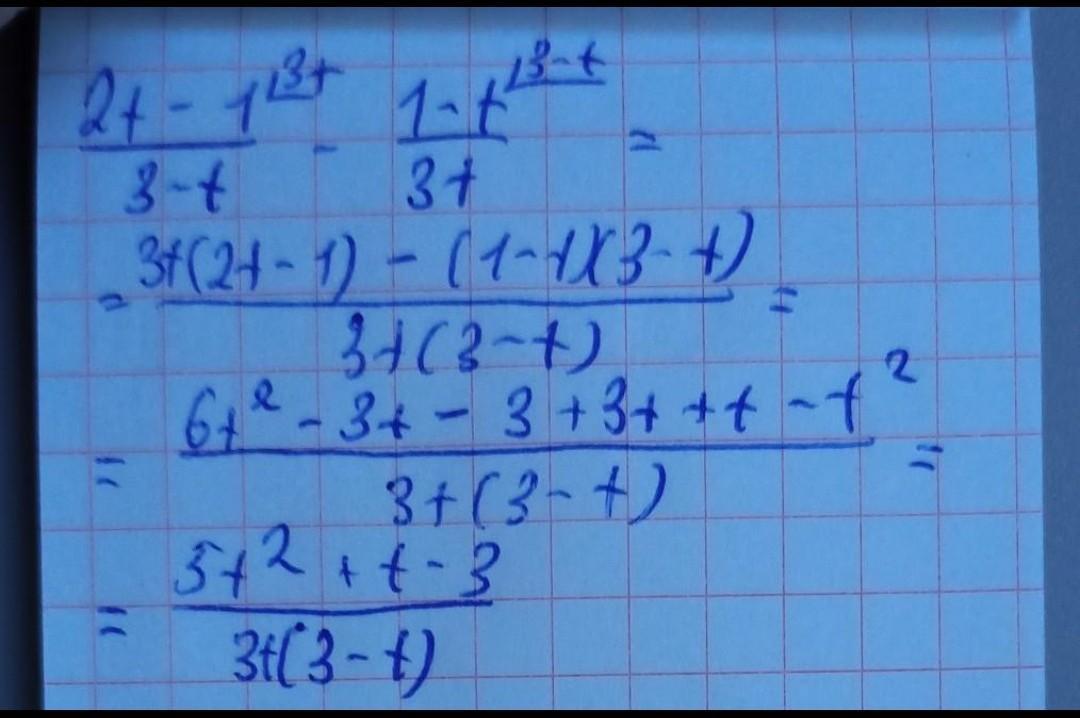 (2t - 1)^{⌊3t}/(3 - t) - (1 - t)^{⌊3 - t}/(3t) =
= (3t(2t - 1) - (1 - t)(3 - t))/(3t(3 - t)) =
= (6t² - 3t - 3 + 3t + t - t²)/(3t(3 - t)) =
= (5t² + t - 3)/(3t(3 - t))